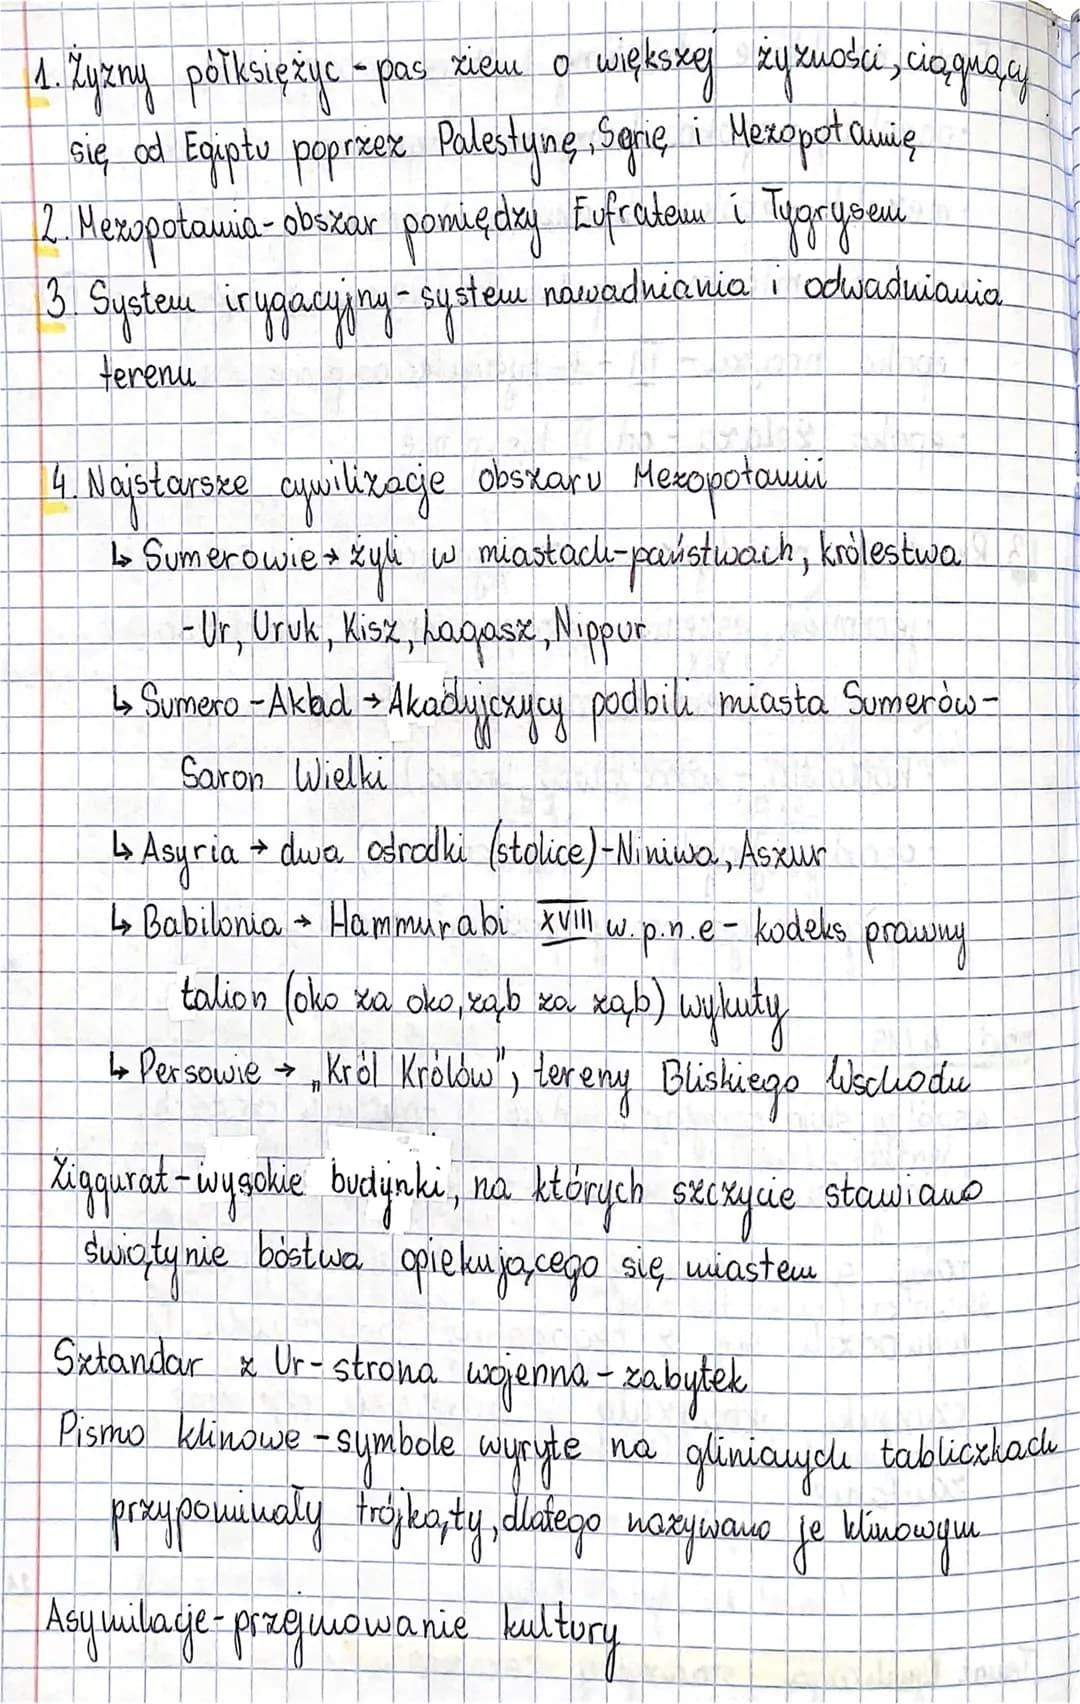 1. Żyzny półksiężyc - pas ziem o większej żyzności, ciągnący
się od Egiptu poprzez Palestynę, Syrię i Mezopotamię
2. Mezopotamia - obszar pomiędzy Eufratem i Tygrysem
3. System irygacyjny - system nawadniania i odwadniania
terenu
4. Najstarsze cywilizacje obszaru Mezopotamii
↳ Sumerowie → żyli w miastach-państwach, królestwa
- Ur, Uruk, Kisz, Lagasz, Nippur
↳ Sumero - Akad → Akadyjczycy podbili miasta Sumerów -
Saron Wielki
↳ Asyria → dwa ośrodki (stolice) - Niniwa, Aszur
↳ Babilonia → Hammurabi XVIII w. p.n.e - kodeks prawny
talion (oko za oko, ząb za ząb) wykuty
↳ Persowie → „Król Królów", tereny Bliskiego Wschodu
Ziggurat - wysokie budynki, na których szczycie stawiano
świątynie bóstwa opiekującego się miastem
Sztandar z Ur - strona wojenna - zabytek
Pismo klinowe - symbole wyryte na glinianych tabliczkach
przypominały trójkąty, dlatego nazywano je klinowym
Asymilacje - przejmowanie kultury